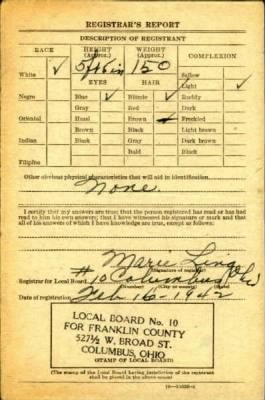 REGISTRAR'S REPORT
DESCRIPTION OF REGISTRANT
RACE HEIGHT (Approx.) WEIGHT (Approx.) COMPLEXION
White ✓ 5ft 6in 150 Sallow
EYES HAIR Light ✓
Negro Blue ✓ Blonde Ruddy
Gray Red Dark
Oriental Hazel Brown ✓ Freckled
Brown Black Light brown
Indian Black Gray Dark brown
Bald Black
Filipino
Other obvious physical characteristics that will aid in identification
None.
I certify that my answers are true; that the person registered has read or has had
read to him his own answers; that I have witnessed his signature or mark and that
all of his answers of which I have knowledge are true, except as follows:
Marie
(Signature of registrar)
Registrar for Local Board #10 Columbus
(Number) (City or county)
Date of registration Feb 16-1942
LOCAL BOARD No. 10
FOR FRANKLIN COUNTY
527½ W. BROAD ST.
COLUMBUS, OHIO
(STAMP OF LOCAL BOARD)
(The stamp of the Local Board having jurisdiction of the registrant
shall be placed in the above space.)